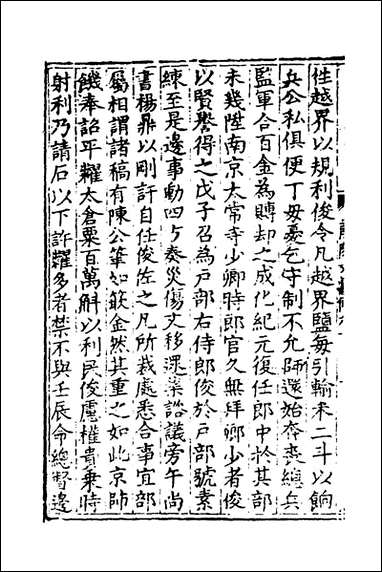 性越界以規利俊令凡越界鹽每引輸米二斗以餉
兵公私俱便丁母憂乞守制不允師還始奔喪總兵
監軍合百金為賻却之成化紀元復任郎中於其部
未幾陞南京太常寺少卿時郎官久無拜卿少者俊
以賢譽得之戊子召為戶部右侍郎俊於戶部號素
練至是邊事動四方奏災傷文移遝深諮議旁午尚
書楊鼎以剛訐自任俊佐之凡所裁處悉合事宜部
屬相謂諸稿有陳公筆如欵金然其重之如此京師
饑奉詔平糶太倉粟百萬斛以利民俊慮權貴乘時
射利乃請石以下許糶多者禁不與壬辰命總督邊